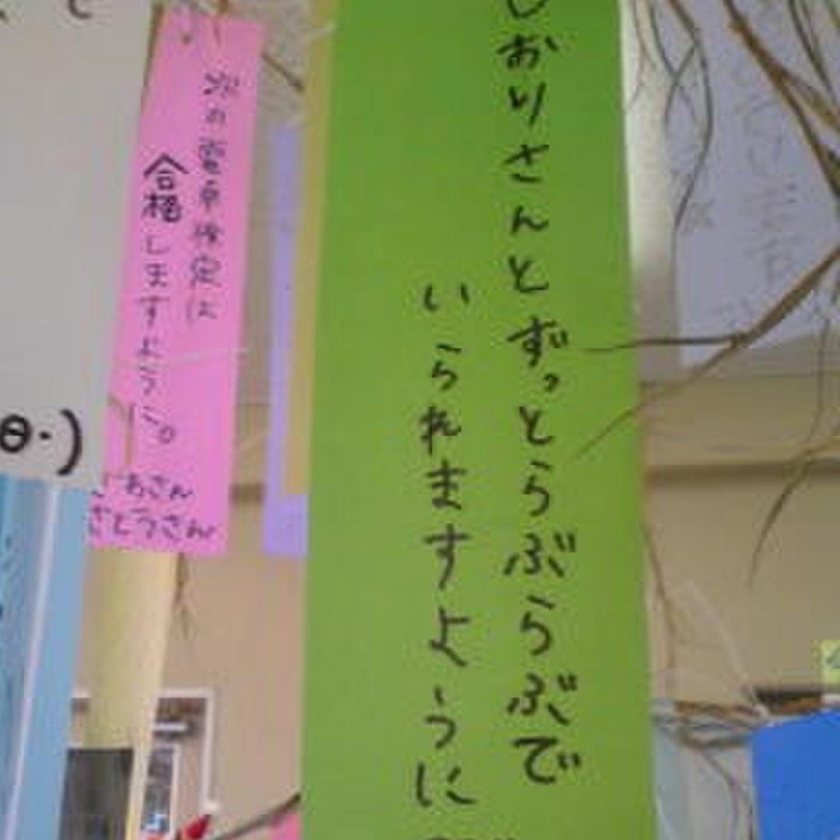 しおりさんとずっとらぶらぶで
いられますように
次の電車検定は
合格しますように。
さとうさん